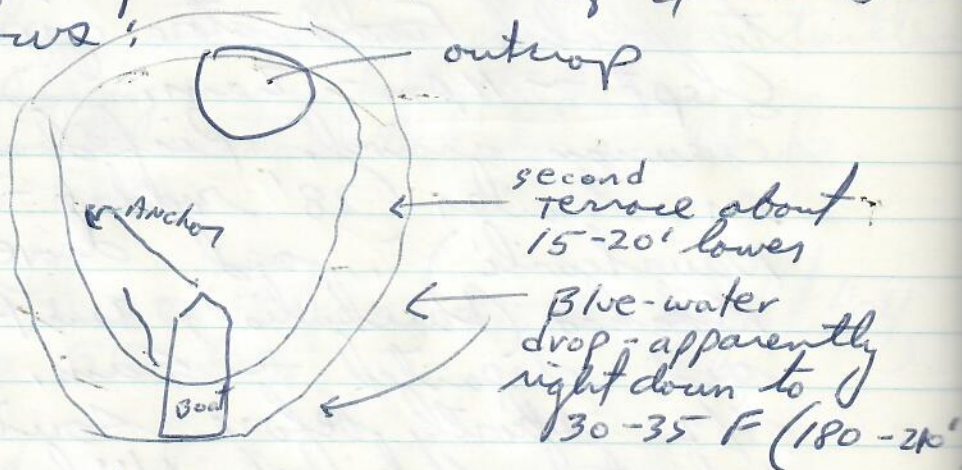 outcrop
Anchor
second
terrace about
15-20' lower
Blue-water
drop - apparently
right down to
30-35 F (180-210'
Boat